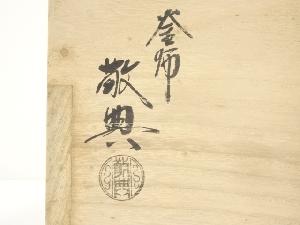 釜師
敬典